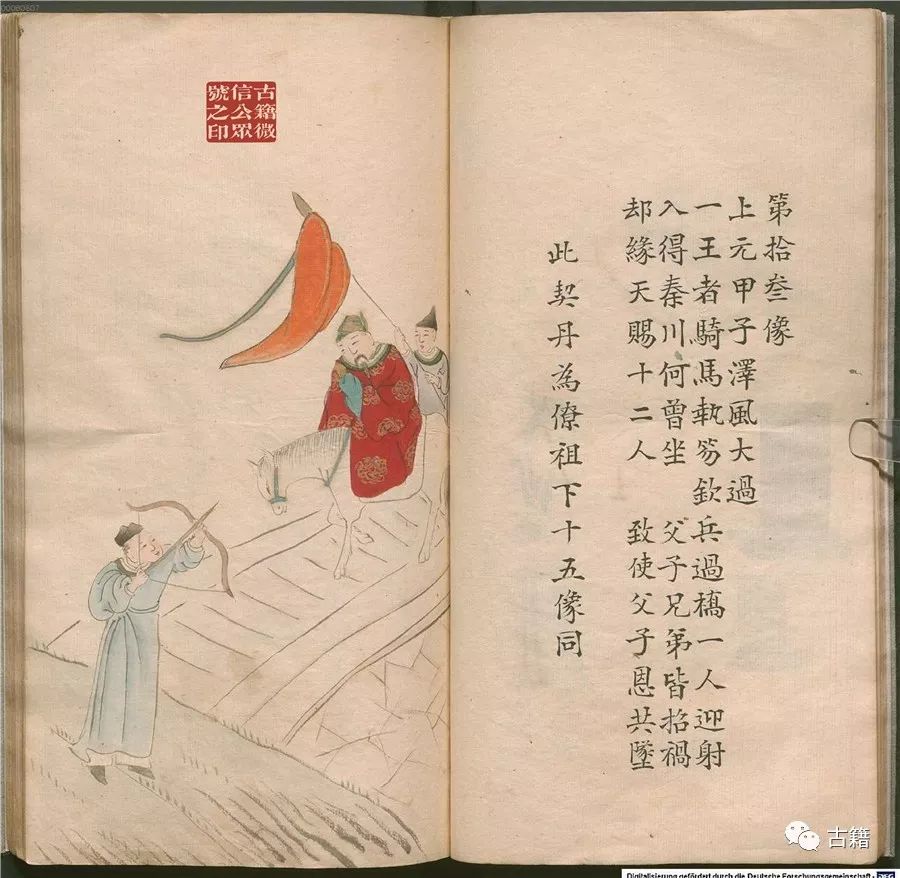 第拾叁像
上元甲子澤風大過
一王者騎馬執笏欽兵過橋一人迎射
入得秦川何曾坐 父子兄弟皆招禍
却緣天賜十二人 致使父子恩共墜
此契丹為僚祖下十五像同
古籍微
信公眾
號之印
古籍
Digitalisierung gefördert durch die Deutsche Forschungsgemeinschaft - DFG